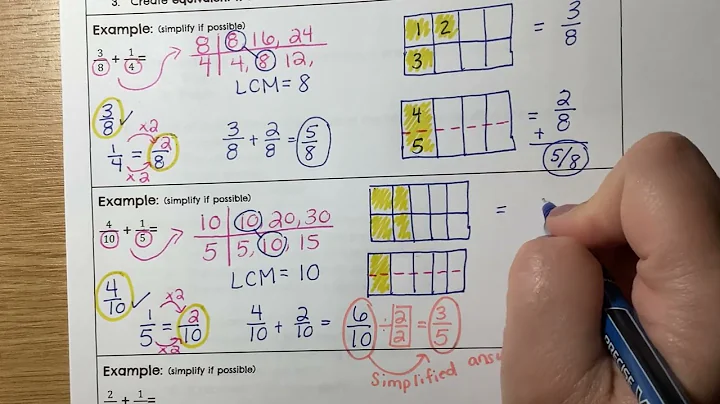 3. Create equivalent
Example: (simplify if possible)
3/8 + 1/4 =
8 | 8, 16, 24
4 | 4, 8, 12,
LCM = 8
3/8 ✓
1/4 = 2/8
x2
x2
3/8 + 2/8 = 5/8
1 2
3
= 3/8
4
5
= 2/8
+
5/8
Example: (simplify if possible)
4/10 + 1/5 =
10 | 10, 20, 30
5 | 5, 10, 15
LCM = 10
4/10 ✓
1/5 = 2/10
x2
x2
4/10 + 2/10 = 6/10 ÷ 2/2 = 3/5
Simplified
=
PRECISE
Example: (simplify if possible)
2 + 1 =